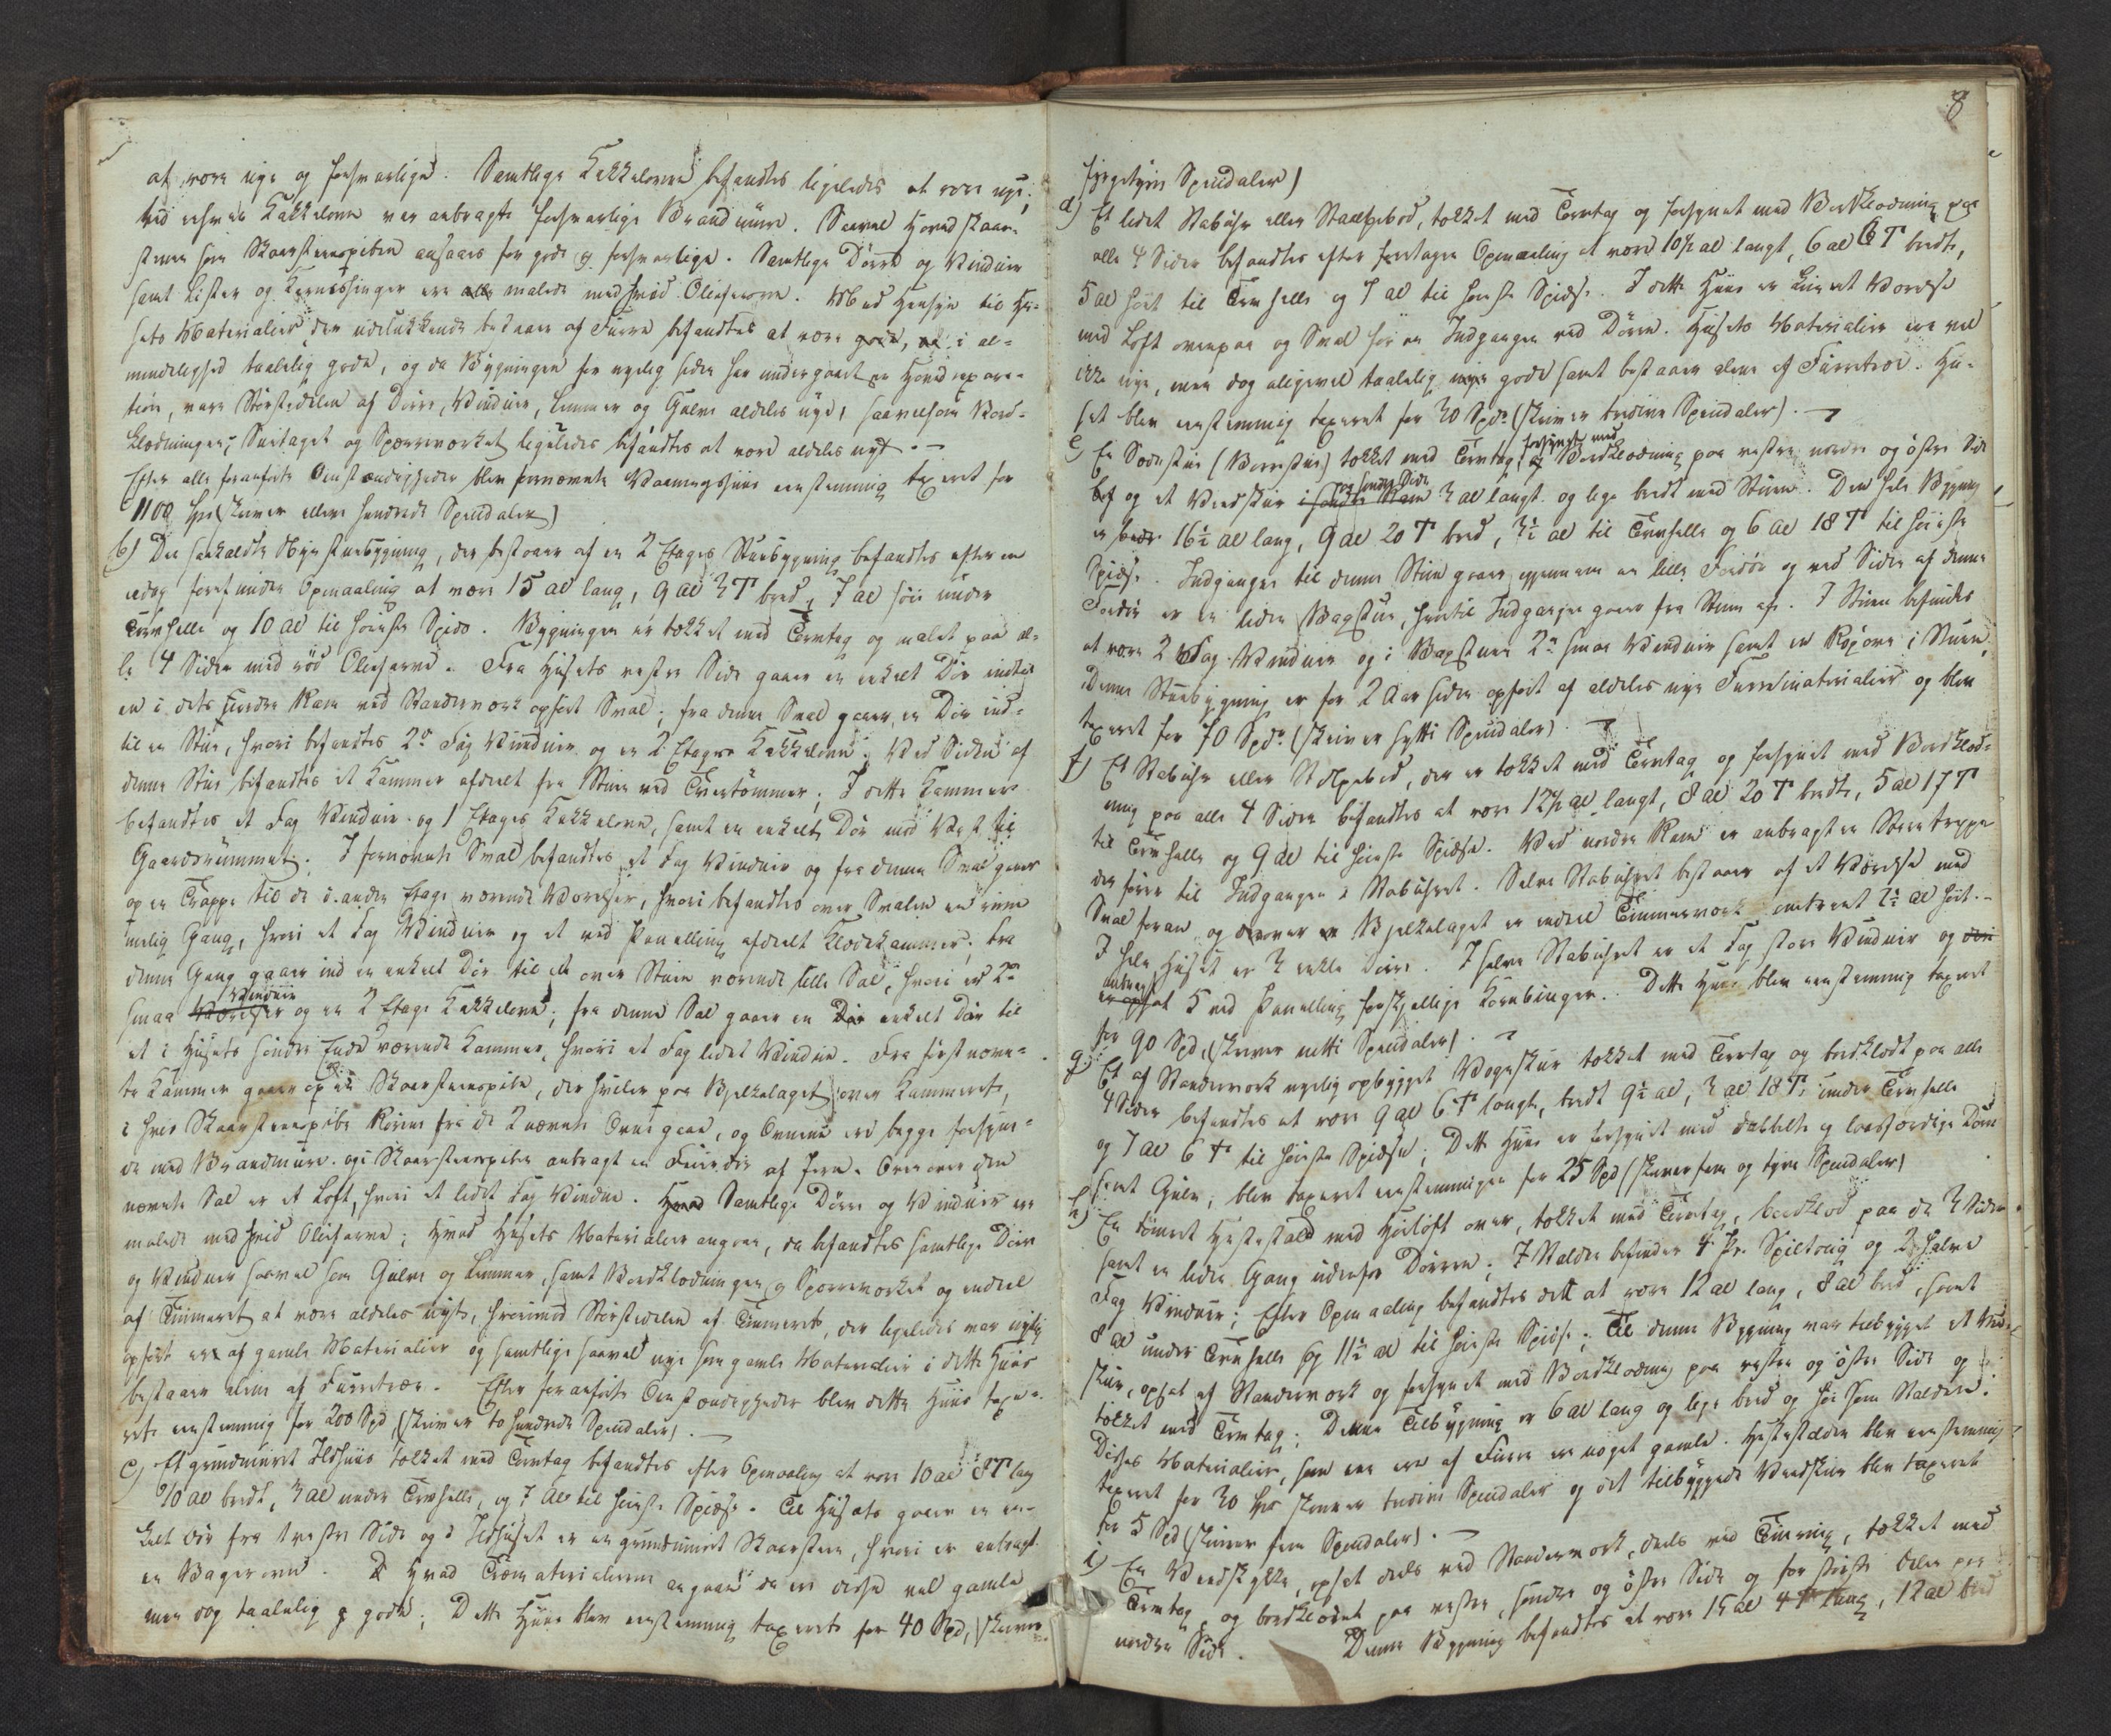 at være nye og forsvarlige. Samtlige Kakkelovne befandtes ligeledes at være nye;
ved enhver Kakkelovn var anbragte forsvarlige Brandmure. Saavel Hovedskaar-
stenen som Skaarsteenspiben ansaaes for gode og forsvarlige. Samtlige Dörre og Vinduer
samt Lister og Karnisser ere alle malede med hvid Oliefarve. Med Hensyn til Hu-
sets Materialier, der udelukkende bestaaer af Furre befandtes at være gode, i al-
mindelighed taalelig gode, og da Bygningen for nylig siden har undergaaet en Hovedrepara-
tion, vare Störstedelen af Dörre, Vinduer, Lemmer og Gulve aldeles nye, saavelsom Bord-
klædningen; Sutaget og Sperreverket ligeledes befandtes at være aldeles nyt. –
Efter alle foranförte Omstændigheder blev fornævnte Vaaningshuus eenstemmig taxeret for
1100 Spd (skriver elleve hundrede Speciedaler)
b) Den saakaldte Nye Stuebygning, der bestaaer af en 2 Etages Stuebygning befandtes efter en
idag foretagen Opmaaling at være 15 al lang, 9 al 3 T bred, 7 al höi under
Törvhelle og 10 al til höieste Spids. Bygningen er tækket med Törvtag og malet paa al-
le 4 Sider med röd Oliefarve. Fra Husets vestre Side gaaer en enkelt Dör indtil
en i dets söndre Ram ved Standerværk opfört Sval; fra denne Sval gaaer en Dör ind-
til en Stue, hvori befandtes 2de Fag Vinduer og en 2 Etages Kakkelovn; Ved Siden af
denne Stue befandtes et Kammer afdeelt fra Stuen ved Tvertömmer; I dette Kammer
befandtes et Fag Vinduer og 1 Etages Kakkelovn, samt en enkelt Dör mod Vest til
Gaardsrummet. I fornævnte Sval befandtes et Fag Vinduer og fra denne Sval gaaer
op en Trappe til de i anden Etage værende Værelser, hvori befandtes over Svalen en rum-
melig Gang, hvori et Fag Vinduer og et ved Panelling afdeelt Klædekammer; fra
denne Gang gaaer ind en enkelt Dör til en over Stuen værende lille Sal, hvori er 2de
Vinduer
smaa Værelser og en 2 Etage Kakkelovn; fra denne Sal gaaer en Dör enkelt Dör til
et i Husets söndre Ende værende Kammer, hvori et Fag lidet Vindue. Fra förstnævn-
te Kammer gaaer op en Skaarsteenspibe, der hviler paa Bjelkelaget over Kammeret,
i hvis Skaarsteenspibe Rörene fra de 2 nævnte Ovne gaae, og Ovnene ere begge forsyne-
de med Brandmure og i Skaarsteenspiben anbragt en Fuurdör af Jern. Ovenover den
nævnte Sal er et Loft, hvori et lidet Fag Vindue. Hvad Samtlige Dörre og Vinduer ere
malede med hvid Oliefarve; Hvad Husets Materialier angaaer, da befandtes samtlige Döre
og Vinduer saavel som Gulve og Lemmer, samt Bordklædningen og Sperreverket og endeel
af Tömmeret at være aldeles nyt, hvorimod Störstedelen af Tömmeret, der ligeledes var nylig
opfört ere af gamle Materialier og samtlige saavel nye som gamle Materialier i dette Huus
bestaaer alene af Furretræe. Efter foranförte Omstændigheder blev dette Huus taxe-
ret eenstemmig for 200 Spd, (skriver to hundrede Speciedaler). –
c) Et grundmuret Ildhuus tækket med Törvtag befandtes efter Opmaaling at være 10 al 8 T lang
10 al bredt, 3 al under Törvhelle, og 7 al til höieste Spidse. Til Husets gaaer en en-
kelt Dör fra vestre Side og i Ildhuset er en grundmuret Skaarsteen, hvori er anbragt
en Bagerovn. Hvad Træmaterialierne angaaer da ere disse vel gamle
men dog taalelig gode; Dette Huus blev eenstemmig taxeret for 40 Spd, (skriver
8
fyrgetyve Speciedaler)
d) Et lidet Stabuhr eller Stolpebod, tækket med Törvtag og forsynet med Bordklædning paa
alle 4 Sider befandtes efter foretagen Opmaaling at være 10½ al langt, 6 al 6 T bredt,
5 al höit til Törvhelle og 7 al til höieste Spidse. I dette Huus er kun et Værelse
med Loft ovenpaa og Sval for en Indgangen ved Dören. Husets Materialier ere vel
ikke nye, men dog aligevel taalelig nye gode samt bestaaer alene af Furretræe. Hu-
set blev eenstemmig taxeret for 30 Spd. (skriver tredive Speciedaler). –
forsynet med
e) En Sædestue (Borrestue) tækket med Törvtag, og Bordklædning paa vestre, nordre og östre Side
paa söndre Side
og et Veedskuur i söndre Ram 3 al langt og lige bredt med Stuen. Den hele Bygning
er 16½ al lang, 9 al 20 T bred, 3½ al til Törvhelle og 6 al 18 T til höieste
Spidse. Indgangen til denne Stue gaaer igjennem en lille Fordör og ved Siden af denne
Fordör er en liden Bagstue, hvortil Indgangen gaaer fra Stuen af. I Stuen befindes
at være 2 Fag Vinduer og i Bagstuen 2de smaa Vinduer samt en Rögovn i Stuen,
Denne Stuebygning er for 2 Aar siden opfört af aldeles nye Furrematerialier og blev
taxeret for 70 Spd. (skriver sytti Speciedaler). –
f) Et Stabuhr eller Stolpebod, der er tækket med Törvtag og forsynet med Bordklæd-
ning paa alle 4 Sider befandtes at være 12½ al langt, 8 al 20 T bredt, 5 al 17 T
til Törvhelle og 9 al til höieste Spidse. Ved nordre Ram er anbragt en Steentrappe
der förer til Indgangen i Stabuhret. Selve Stabuhret bestaaer af et Værelse med
Sval foran og ovenover Bjelkelaget er endeel Tömmerværk omtrent 2½ al höit. –
I hele Huset er 3 enkelte Dörre. I selve Stabuhret er et Fag store Vinduer og
anbragt
er opsat 5 ved Panelling forskjellige Kornbinger. Dette Huus blev eenstemmig taxeret
for 90 Spd, (skriver netti Speciedaler). –
g) Et af Standerværk nyelig opbygget Vognskuur tækket med Törvtag og bordklædt paa alle
4 Sider befandtes at være 9 al 6 T langt, bredt 9½ al, 3 al 18 T under Törvhelle
og 7 al 6 T til höieste Spidse; Dette Huus er forsynet med dobbelte og laasfærdige Döre
samt Gulv, blev taxeret eenstemmigen for 25 Spd (skriver fem og tyve Speciedaler)
h) En tömret Hestestald med Höeloft over, tækket med Törvtag, bordklæd paa de 3 Sider
samt en liden Gang udenfor Dörren; I Stalden befindes 4 Pr. Spiltoug og 2 halve
Fag Vinduer; Efter Opmaaling befandtes det at være 12 al lang, 8 al bred, samt
8 al under Törvhelle og 11½ al til höieste Spidse; Til denne Bygning var tilbygget et Veed-
skuur, opsat af Standerværk og forsynet med Bordklædning paa vestre og östre Side og
tækket med Törvtag; Denne Tilbygning er 6 al lang og lige bred og höi som Stalden.
Disses Materialier, som ere af Furre ere noget gamle. Hestestalden blev eenstemmig
taxeret for 30 Spd skriver tredive Speciedaler og det tilbyggede Veedskuur blev taxeret
for 5 Spd (skriver fem Speciedaler). –
i) En Veedskykke, opsat deels ved Standerværk, deels ved Tömring, tækket med
Törvtag og bordklædet paa vestre, söndre og östre Side og for störste Delen paa
nordre Side. Denne Bygning befandtes at være 15 al 4 T lang, 12 al bred